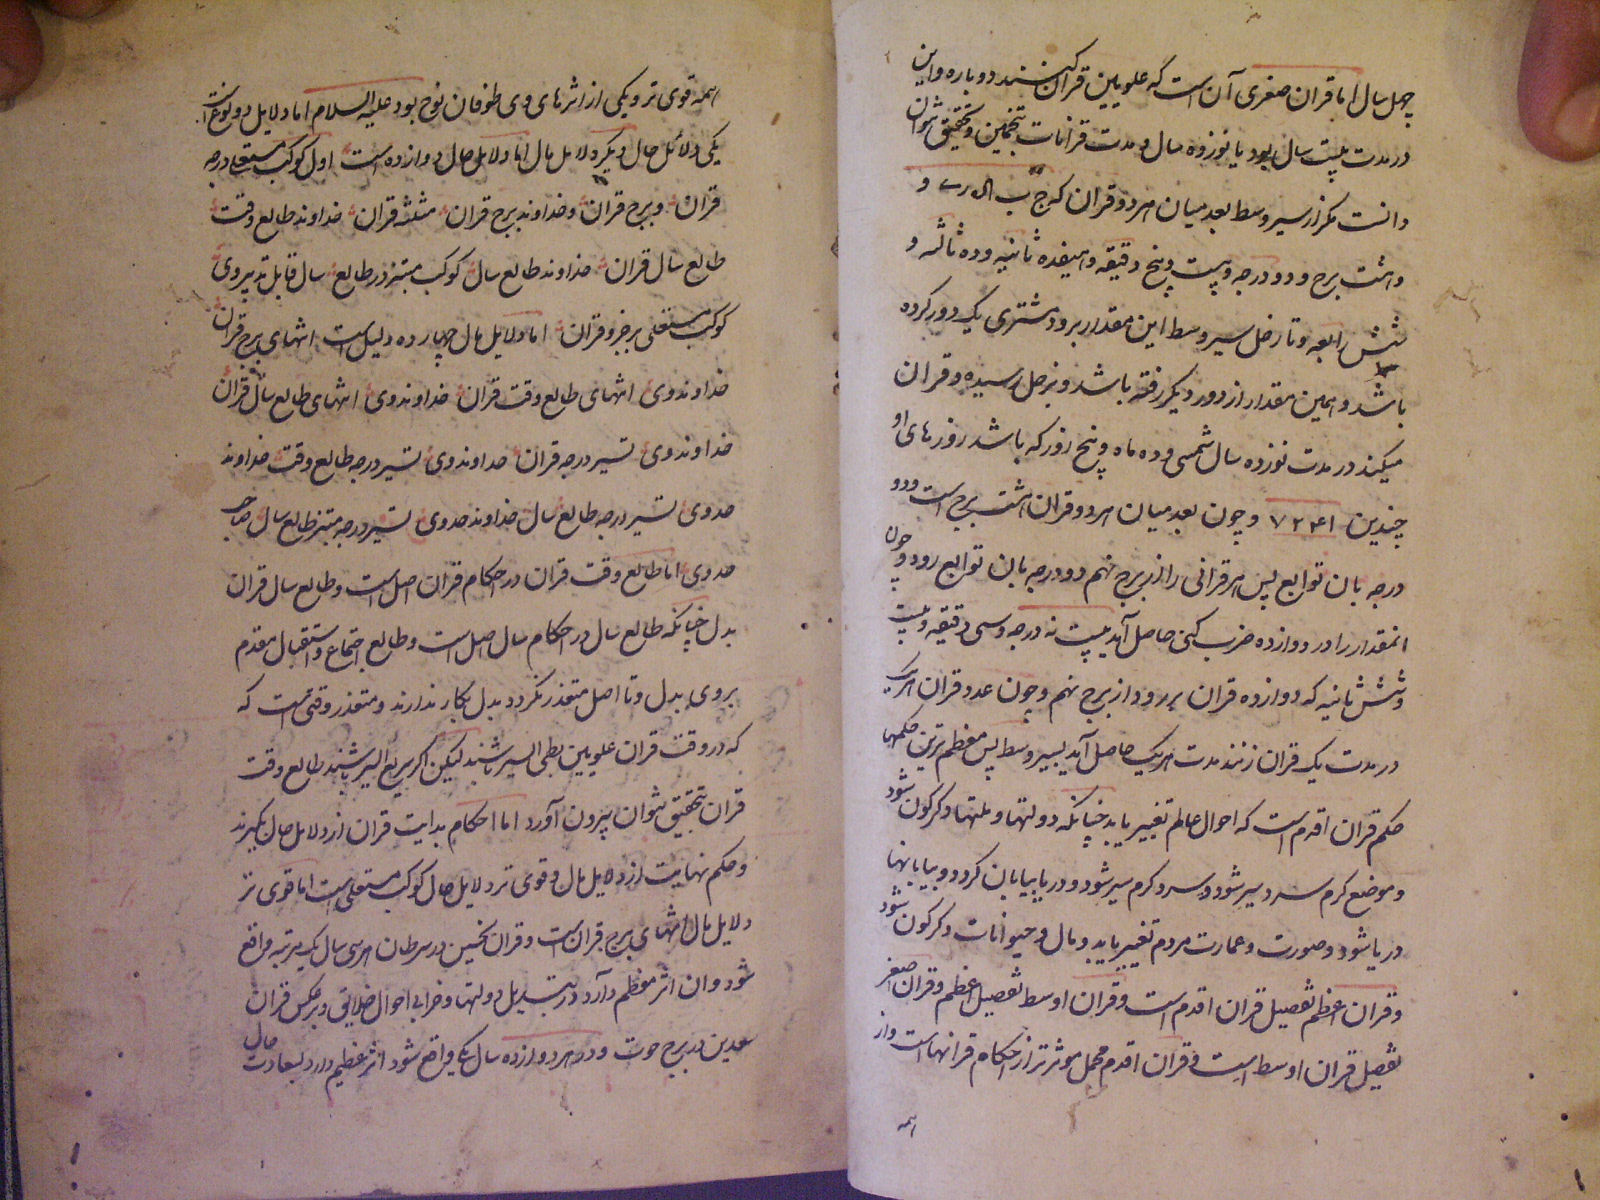 چهل سال اما قران صغری آن است که علویین قران کنند دوباره واین
در مدت بیست سال بود یا نوزده سال و مدت قرانات بتخمین و تحقیق توان
دانست مگر از سیر وسط بعد میان هر دو قران که و
و هشت برج و دو درجه و بیست و پنج دقیقه و هیفده ثانیه و ده ثالثه و
شش رابعه و تا زحل سیر وسط این مقدار برود مشتری یک دور کرده
باشد و همین مقدار از دور دیکر رفته باشد و بزحل رسیده و قران
میکند در مدت نوزده سال شمسی و ده ماه و پنج روز که باشد روزهای او
چندین ۷۲۴۱ و چون بعد میان هر دو قران هشت برج است و دو
درجه بان توابع پس هر قرانی را از برج نهم دو درجه بان توابع رود و چون
انمقدار را در دوازده ضرب کنی حاصل آید بیست نه درجه و سی دقیقه و بیست
و شش ثانیه که دوازده قران برود از برج نهم و چون عدد قران هر یک
در مدت یک قران زنند مدت هر یک حاصل آید بسیر وسط پس معظم ترین حکمها
حکم قران اقدم است که احوال عالم تغییر یابد چنانکه دولتها و ملتها دکرکون شود
و موضع کرم سرد سیر شود و سرد کرم سیر شود و دریا بیابان کردد و بیابانها
دریا شود و صورت و عمارت مردم تغییر یابد و مال و حیوانات دکرکون شود
و قران اعظم تفصیل قران اقدم است و قران اوسط تفصیل اعظم و قران اصغر
تفصیل قران اوسط است و قران اقدم مجمل موثرتر از احکام قرانهاست و از
همه
همه قوی تر و یکی از اثرهای وی طوفان نوح بود علیه السلام اما دلایل دو نوع است
یکی دلائل حال و دیکر دلایل مال اما دلایل حال دوازده است اول کوکب مستعلی درجه
قران و برج قران و خداوند برج قران مثلثه قران خداوند طالع وقت
طالع سال قران خداوند طالع سال کوکب مبتز در طالع سال قابل تدبیر وی
کوکب مستعلی بر جزو قران اما دلایل مال چهارده دلیل است انتهای برج قران
خداوند وی انتهای طالع وقت قران خداوند وی انتهای طالع سال قران
خداوند وی تسیر درجه قران خداوند وی تسیر درجه طالع وقت خداوند
حد وی تسیر درجه طالع سال خداوند حد وی تسیر درجه مبتز طالع سال صاحب
حد وی اما طالع وقت قران در احکام قران اصل است و طالع سال قران
بدل چنانکه طالع سال در احکام سال اصل است و طالع اجتماع و استقبال مقدم
بر وی بدل و تا اصل متعذر نکردد بدل بکار ندارند و متعذر وقتی است که
که در وقت قران علویین بطی السیر باشند لیکن اکر سریع السیر باشند طالع وقت
قران بتحقیق نتوان بیرون آورد اما احکام بدایت قران از دلایل حال بگیرند
و حکم نهایت از دلایل مال و قوی تر دلایل حال کوکب مستعلی است اما قوی تر
دلایل مال انتهای برج قران است و قران نحسین در سرطان هر سی سال یک مرتبه واقع
شود و ان اثر معظم دارد در تبدیل دولتها و خرابی احوال خلایق و بر عکس قران
سعدین در برج حوت و در هر دوازده سال یکی واقع شود اثر عظیم دارد بسعادت حال